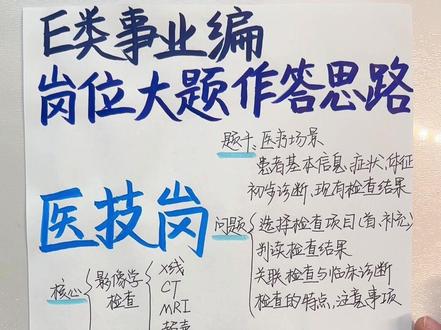 E类事业编
岗位大题作答思路
题干：医疗场景
患者基本信息、症状、体征
初步诊断、现有检查结果
医技岗
问题
选择检查项目(首、补充)
判读检查结果
关联检查与临床诊断
检查的特点、注意事项
核心
影像学
检查
X线
CT
MRI